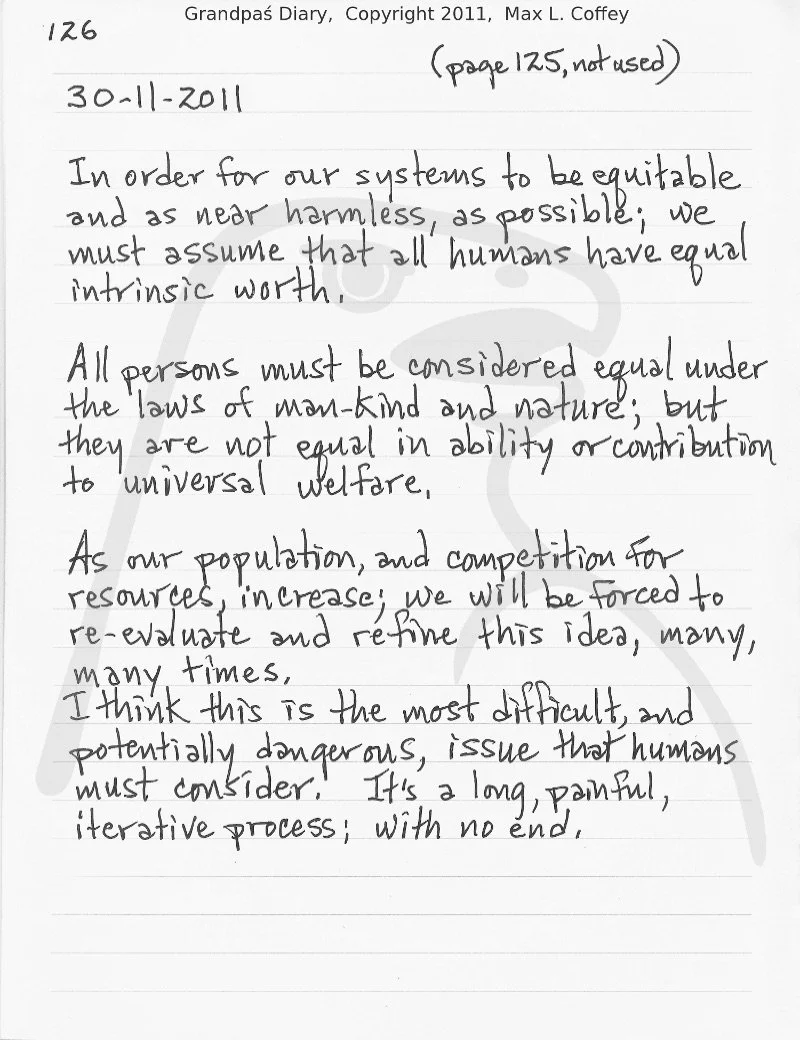 Grandpaś Diary, Copyright 2011, Max L. Coffey
126
(page 125, not used)
30-11-2011
In order for our systems to be equitable
and as near harmless, as possible; we
must assume that all humans have equal
intrinsic worth.
All persons must be considered equal under
the laws of man-kind and nature; but
they are not equal in ability or contribution
to universal welfare.
As our population, and competition for
resources, increase; we will be forced to
re-evaluate and refine this idea, many,
many times.
I think this is the most difficult, and
potentially dangerous, issue that humans
must consider. It's a long, painful,
iterative process; with no end.